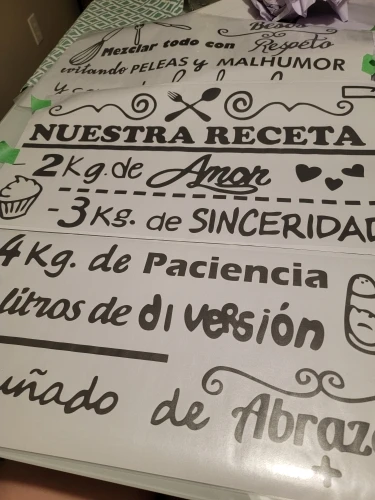 Besos
Mezclar todo con Respeto
evitando PELEAS y MALHUMOR
NUESTRA RECETA
2Kg. de Amor
-3Kg. de SINCERIDAD
4Kg. de Paciencia
litros de diversión
uñado de Abraz
+